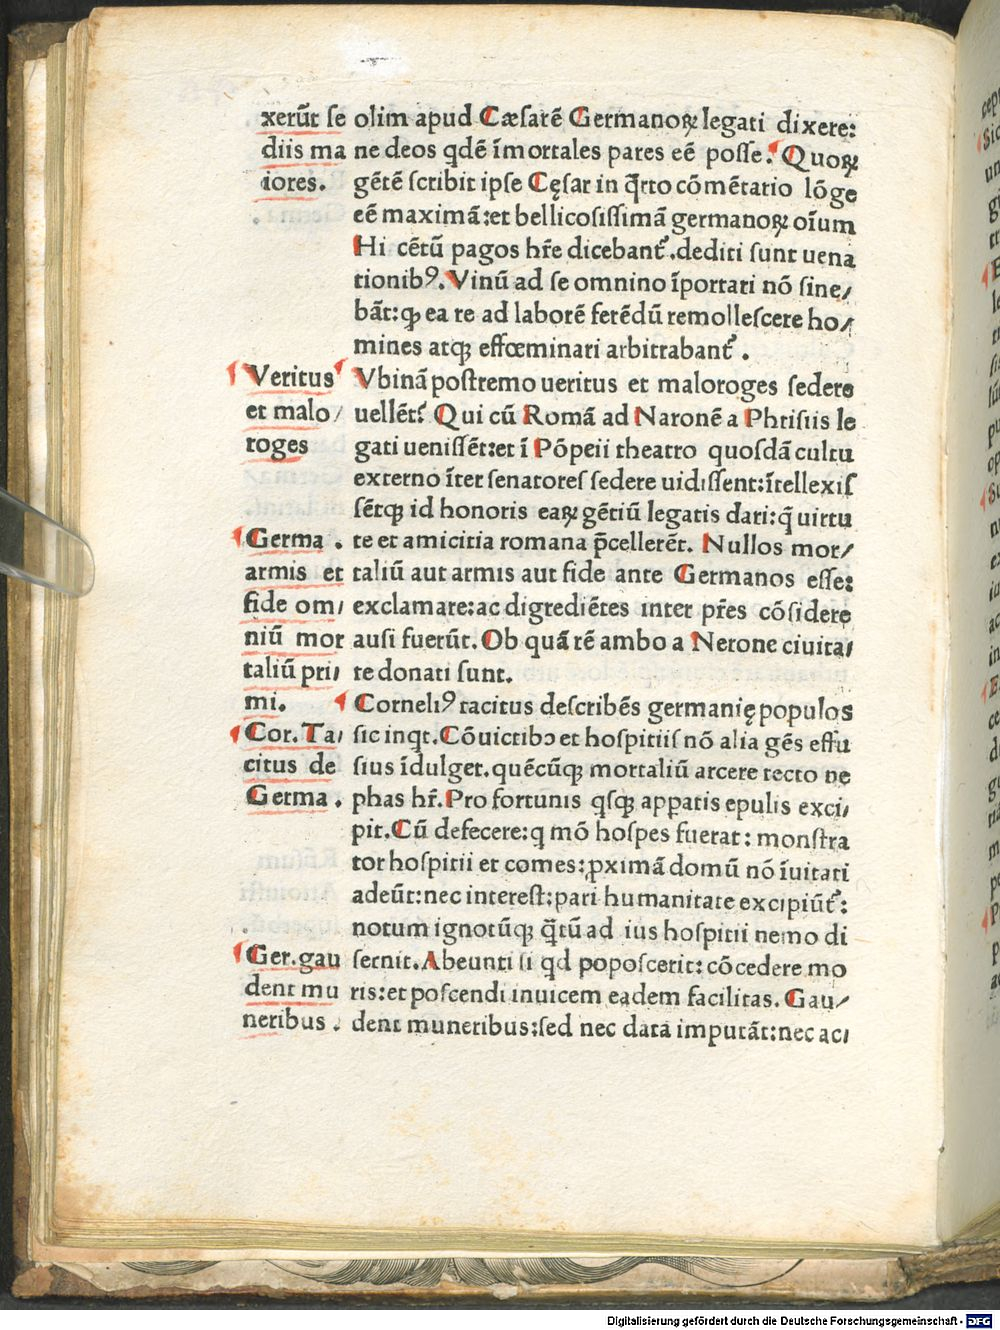 xerūt se
diis ma
iores.
olim apud Cæsarē Germanoꝝ legati dixere:
ne deos qdē īmortales pares eē posse. Quoꝝ
gētē scribit ipse Cęsar in q̄rto cōmētario lōge
eē maximā: et bellicosissimā germanoꝝ oīum
Hi cētū pagos hr̄e dicebant᷑. dediti sunt uena
tionibꝰ. Vinū ad se omnino īportari nō sine/
bāt: ꝙ ea re ad laborē ferēdū remollescere ho/
mines atqꝫ effœminari arbitrabant᷑.
Veritus
et malo/
roges
Vbinā postremo ueritus et maloroges sedere
uellēt? Qui cū Romā ad Naronē a Phrisiis le
gati uenissēt: et ī Pōpeii theatro quosdā cultu
externo īter senatores sedere uidissent: ītellexis
sētqꝫ id honoris eaꝝ gētiū legatis dari: q̄ uirtu
Germa.
armis et
fide om/
niū mor
taliū pri/
mi.
te et amicitia romana p̄cellerēt. Nullos mor/
taliū aut armis aut fide ante Germanos esse:
exclamare: ac digrediētes inter pr̄es cōsidere
ausi fuerūt. Ob quā rē ambo a Nerone ciuita/
te donati sunt.
Corneliꝰ tacitus describēs germanię populos
Cor. Ta/
citus de
Germa.
sic inqt. Cōuictibꝫ et hospitiis nō alia gēs effu
sius īdulget. quēcūqꝫ mortaliū arcere tecto ne
phas hr̄. Pro fortunis qsqꝫ apparis epulis exci/
pit. Cū defecere: q mō hospes fuerat: monstra
tor hospitii et comes: ꝓximā domū nō īuitati
adeūt: nec interest: pari humanitate excipiūt᷑:
notum ignotūqꝫ q̄tū ad ius hospitii nemo di
Ger. gau
dent mu
neribus.
scernit. Abeunti si qd poposcerit: cōcedere mo
ris: et poscendi inuicem eadem facilitas. Gau/
dent muneribus: sed nec data imputāt: nec ac/
Digitalisierung gefördert durch die Deutsche Forschungsgemeinschaft - DFG